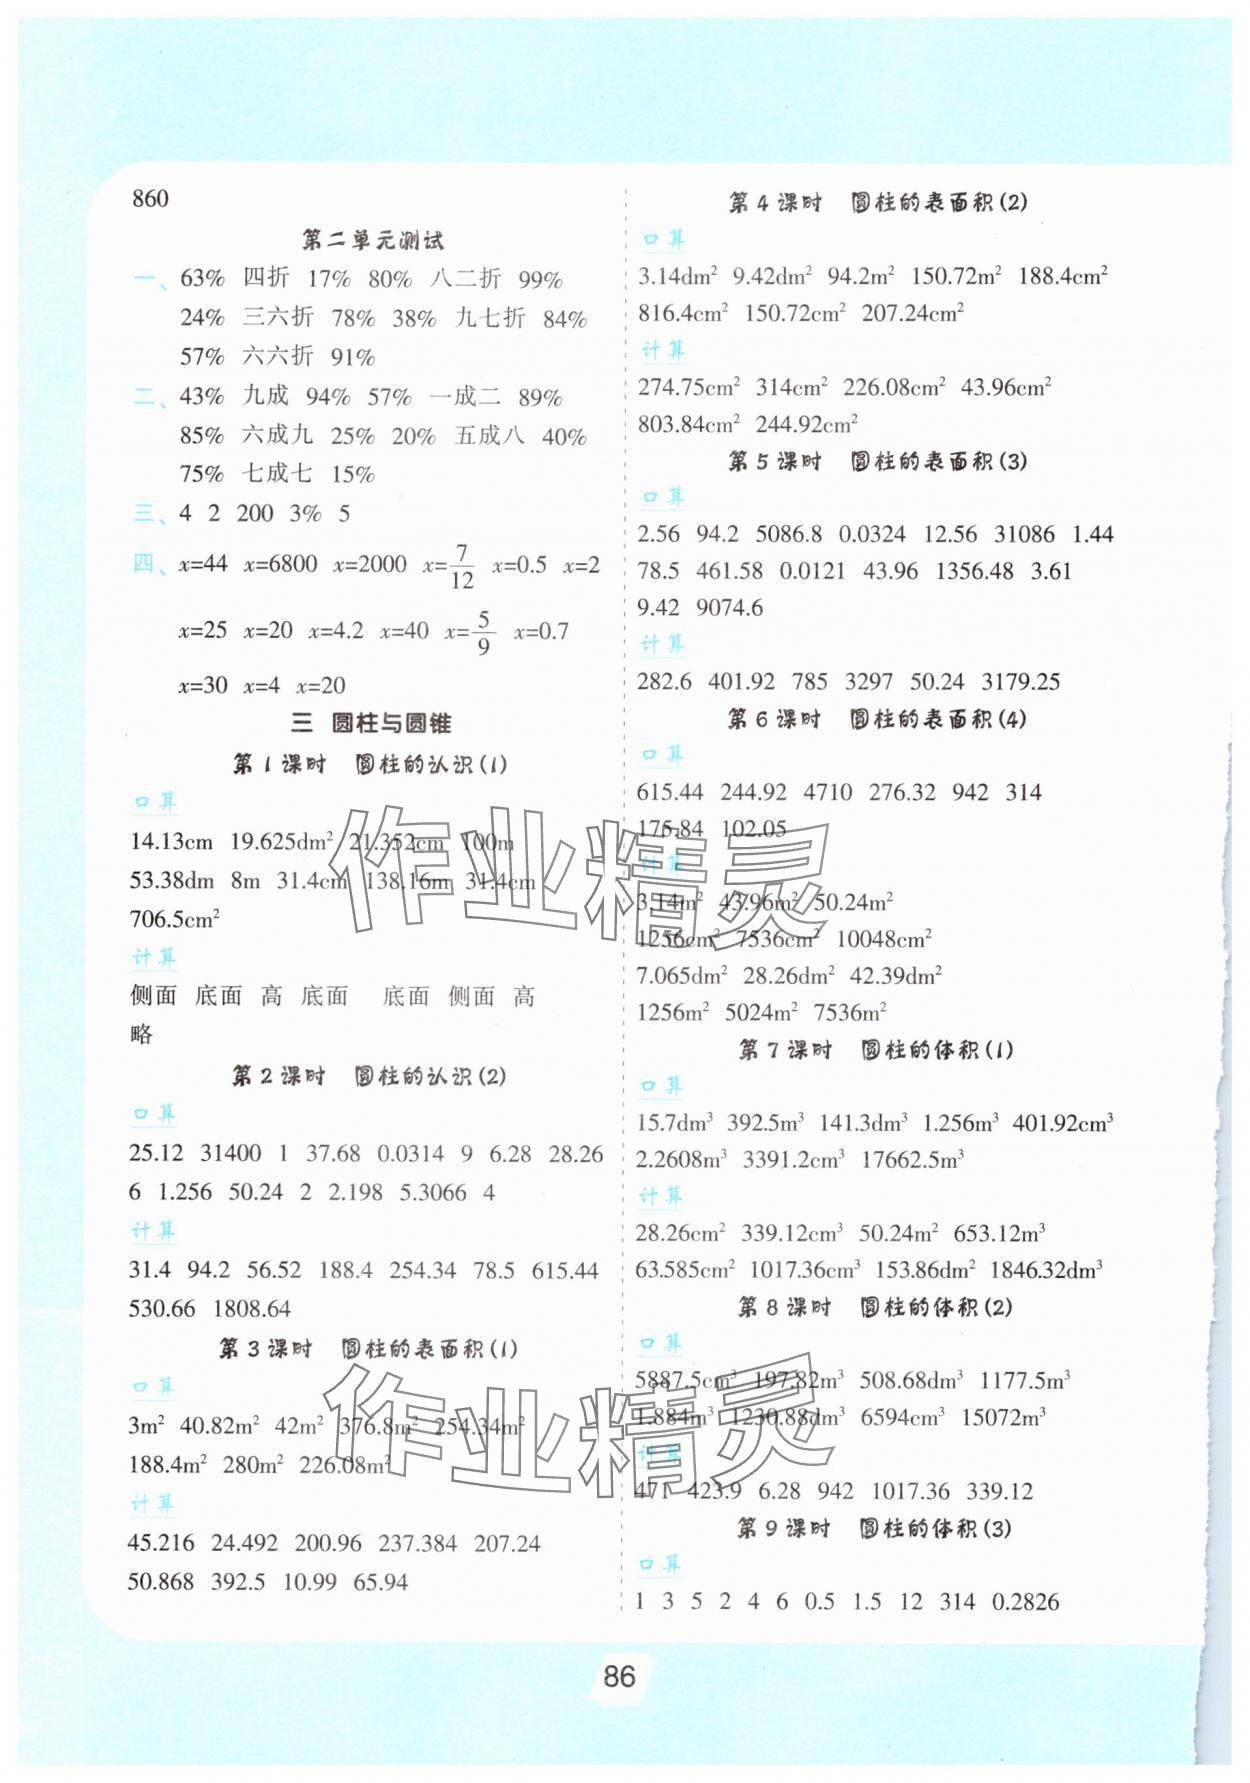 860
第二单元测试
一、 63% 四折 17% 80% 八二折 99%
24% 三六折 78% 38% 九七折 84%
57% 六六折 91%
二、 43% 九成 94% 57% 一成二 89%
85% 六成九 25% 20% 五成八 40%
75% 七成七 15%
三、 4 2 200 3% 5
四、 x=44 x=6800 x=2000 x=7/12 x=0.5 x=2
x=25 x=20 x=4.2 x=40 x=5/9 x=0.7
x=30 x=4 x=20
三 圆柱与圆锥
第1课时 圆柱的认识(1)
口算
14.13cm 19.625dm² 21.352cm 100m
53.38dm 8m 31.4cm 138.16m 31.4cm
706.5cm²
计算
侧面 底面 高 底面 底面 侧面 高
略
第2课时 圆柱的认识(2)
口算
25.12 31400 1 37.68 0.0314 9 6.28 28.26
6 1.256 50.24 2 2.198 5.3066 4
计算
31.4 94.2 56.52 188.4 254.34 78.5 615.44
530.66 1808.64
第3课时 圆柱的表面积(1)
口算
3m² 40.82m² 42m² 376.8m² 254.34m²
188.4m² 280m² 226.08m²
计算
45.216 24.492 200.96 237.384 207.24
50.868 392.5 10.99 65.94
第4课时 圆柱的表面积(2)
口算
3.14dm² 9.42dm² 94.2m² 150.72m² 188.4cm²
816.4cm² 150.72cm² 207.24cm²
计算
274.75cm² 314cm² 226.08cm² 43.96cm²
803.84cm² 244.92cm²
第5课时 圆柱的表面积(3)
口算
2.56 94.2 5086.8 0.0324 12.56 31086 1.44
78.5 461.58 0.0121 43.96 1356.48 3.61
9.42 9074.6
计算
282.6 401.92 785 3297 50.24 3179.25
第6课时 圆柱的表面积(4)
口算
615.44 244.92 4710 276.32 942 314
175.84 102.05
计算
3.14m² 43.96m² 50.24m²
1256cm² 7536cm² 10048cm²
7.065dm² 28.26dm² 42.39dm²
1256m² 5024m² 7536m²
第7课时 圆柱的体积(1)
口算
15.7dm³ 392.5m³ 141.3dm³ 1.256m³ 401.92cm³
2.2608m³ 3391.2cm³ 17662.5m³
计算
28.26cm² 339.12cm³ 50.24m² 653.12m³
63.585cm² 1017.36cm³ 153.86dm² 1846.32dm³
第8课时 圆柱的体积(2)
口算
5887.5cm³ 197.82m³ 508.68dm³ 1177.5m³
1.884m³ 1230.88dm³ 6594cm³ 15072m³
计算
471 423.9 6.28 942 1017.36 339.12
第9课时 圆柱的体积(3)
口算
1 3 5 2 4 6 0.5 1.5 12 314 0.2826
86
作业精灵
作业精灵